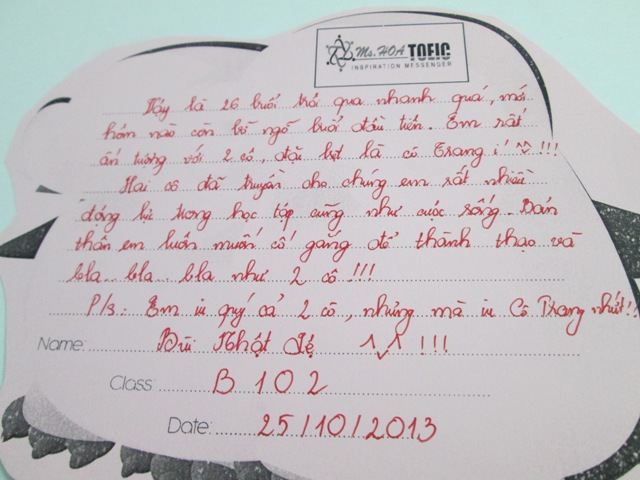 Ms. HOA TOEIC
INSPIRATION MESSENGER
Vậy là 26 buổi trôi qua nhanh quá, mới
hôm nào còn bỡ ngỡ buổi đầu tiên. Em rất
ấn tượng với 2 cô, đặc biệt là cô Trang í ^^ !!!
Hai cô đã truyền cho chúng em rất nhiều
động lực trong học tập cũng như cuộc sống. Bản
thân em luôn muốn cố gắng để thành thạo và
bla.. bla.. bla như 2 cô !!!
P/s: Em iu quý cả 2 cô, nhưng mà iu Cô Trang nhất!!
Name: Bùi Nhật Lệ ^v^ !!!
Class: B 102
Date: 25/10/2013